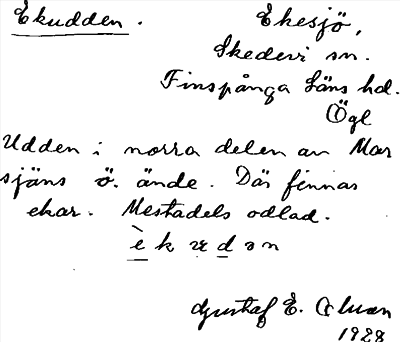 Ekudden. Ekesjö,
Skedevi sn.
Finspånga Läns hd.
Ögl
Udden i norra delen av Mar
sjäns ö. ände. Där finnas
ekar. Mestadels odlad.
Gustaf E.
1928